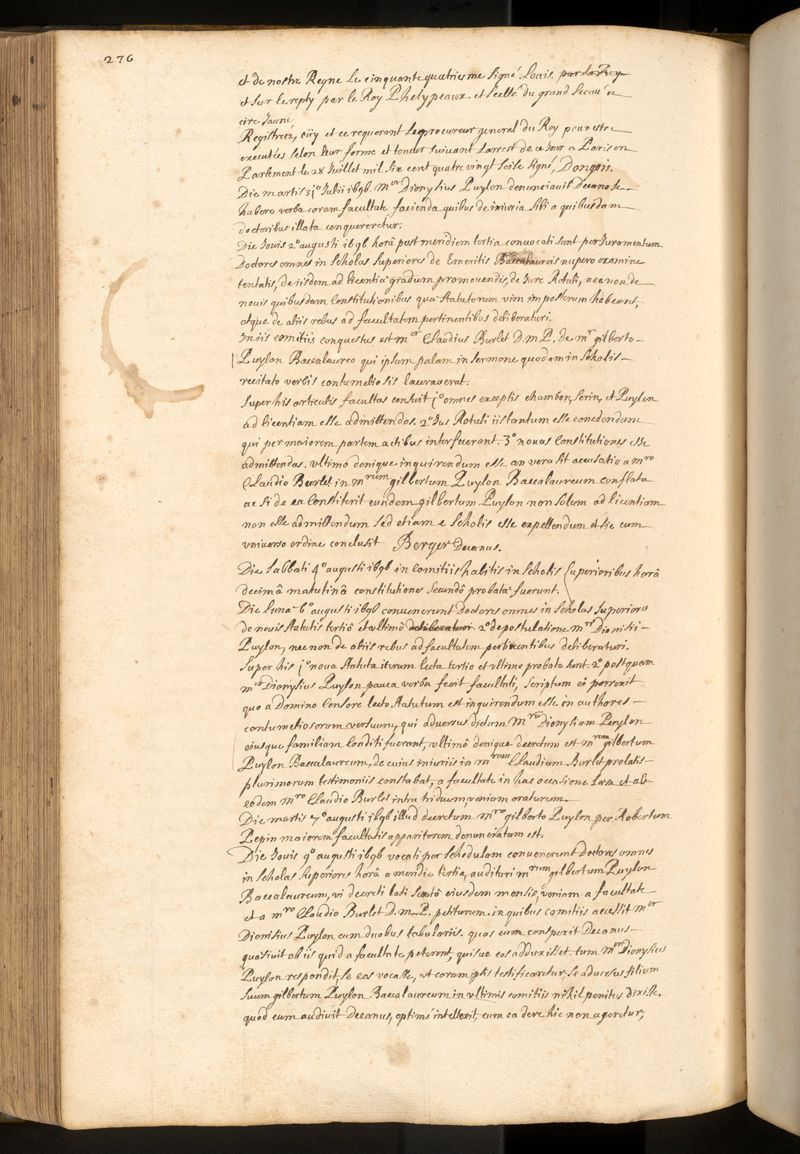 276
et de nostre Regne Le cinquante quatriesme signé Louis. par Le Roy
et sur le reply par le Roy Phelypeaux. et scellé du grand Sceau de
cire Jaune.
Registrees, oüy et ce requerant Le procureur general du Roy pour estre
executées selon leur forme et teneur suivant Larrest de ce Jour a Paris en
Parlement le 28 Juillet mil six cent quatre vingt seise signé, Dongois.
Die martis 31º Julii 1696. mer Dionysius Puylon denunciavit Decano se
habere verba coram facultate facienda quibus de iniuria sibi a quibusdam
doctoribus illata conquereretur.
Die Jovis 2º augusti 1696 horâ post meridiem tertia convocati sunt per Juramentum
Doctores omnes in scholas superiores de Emeritis Baccalaureis nupero examine
tentatis, de iisdem ad licentiae gradum promovendis, de Jure Rotuli, nec non de
novis quibusdam Constitutionibus quae statutorum vim in posterum habeant,
atque de aliis rebus ad facultatem pertinentibus deliberaturi.
In iis comitiis conquestus est mer Claudius Burlet D.m.P. de mro gilberto
Puylon Baccalaureo qui ipsum palam in sermone quodam in scholis
recitato verbis contumeliosis lacerauerat.
super his articulis facultas censuit 1º omnes exceptis chambon, serin, et Puylon
ad licentiam esse admittendos. 2º Jus Rotuli iis tantum esse concedendum
qui per maiorem partem actibus interfuerant. 3º novas Constitutiones esse
admittendas. ultimo denique inquirendum esse an vera sit accusatio a mro
Claudio Burlet in mrum gilbertum Puylon Baccalaureum conflata
ac si de ea Constiterit eundem gilbertum Puylon non solum ad licentiam
non esse admittendum sed etiam e scholis esse expellendum et sic cum
universo ordine conclusit Berger Decanus.
Die sabbati 4º augusti 1696 in comitiis habitis in scholis superioribus horâ
decimâ matutinâ constitutiones secundò probatae fuerunt.
Die Lunae 6º augusti 1696 convenerunt Doctores omnes in scholas superiores
de novis statutis tertiò et ultimò deliberaturi 2º de postulatione mri Dionisii
Puylon, nec non de aliis rebus ad facultatem pertinentibus deliberaturi.
super his 1º nova statuta iterum lecta tertio et ultimo probata sunt. 2º postquam
mer Dionysius Puylon pauca verba fecit facultati, scriptum ei porrexit
quo a Domino Censore lecto statutum est inquirendum esse in authores
contumeliosorum versuum, qui adversus dictum mrum Dionysium Puylon
eiusque familiam conditi fuerant, ultimò denique decretum est mrum gilbertum
Puylon Baccalaureum, de cuius iniuriis in mrum Claudium Burlet prolatis
plurimorum testimoniis constabat, a facultate in hac occasione laesa et ab
eodem mro Claudio Burlet intra triduum, veniam oraturum.
Die martis 7º augusti 1696 illud decretum mro gilberto Puylon per Robertum
Pepin maiorem facultatis apparitorem denunciatum est.
Die Jovis 9º augusti 1696 vocati per schedulam convenerunt Doctores omnes
in scholas superiores horâ a meridie tertia, audituri mrum gilbertum Puylon
Baccalaureum, vi decreti lati sextô eiusdem mensis, veniam a facultate
et a mro Claudio Burlet D.m.P. petiturum. in quibus comitiis accessit mer
Dionisius Puylon cum duobus tabulariis. quos cum conspexit Decanus
quaesivit ab iis quid a facultate peterent, quisve eos adduxisset. tum mer Dionysius
Puylon respondit, se eos vocasse, ut coram ipsis testificaretur, se adversus filium
suum gilbertum Puylon Baccalaureum in ultimis comitiis nihil penitus dixisse.
quod cum audivit Decanus, optimè intellexit, cum ea de re hic non ageretur,